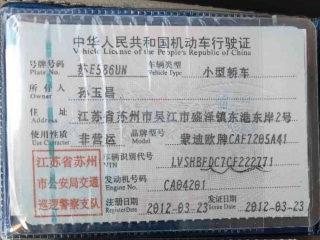 中华人民共和国机动车行驶证
Vehicle License of the People's Republic of China
号牌号码 苏E586UN 车辆类型 小型轿车
Plate No. Vehicle Type
所有人 孙玉昌
Owner
住址 江苏省苏州市吴江市盛泽镇东港东岸2号
Address
使用性质 非营运 品牌型号 蒙迪欧牌CAF7205A41
Use Character Model
江苏省苏州
市公安局交通
巡逻警察支队
车辆识别代号 LVSHBFDC7CF222771
VIN
发动机号码 CA04201
Engine No.
注册日期 2012-03-23 发证日期 2012-03-23
Register Date Issue Date